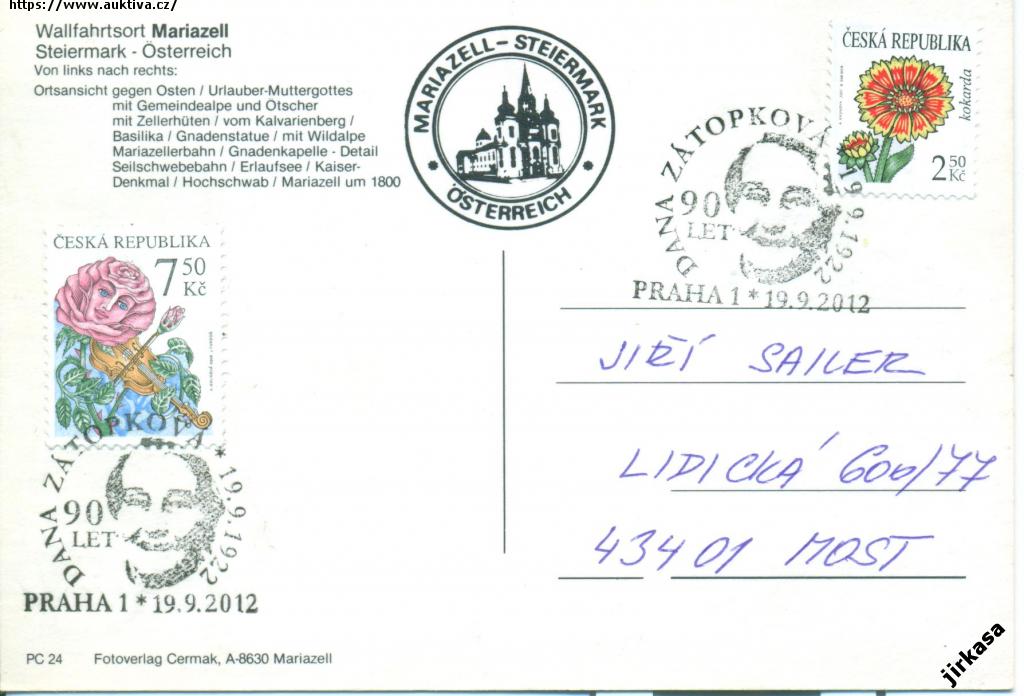 https://www.auktiva.cz/
Wallfahrtsort Mariazell
Steiermark - Österreich
Von links nach rechts:
Ortsansicht gegen Osten / Urlauber-Muttergottes
mit Gemeindealpe und Ötscher
mit Zellerhüten / vom Kalvarienberg /
Basilika / Gnadenstatue / mit Wildalpe
Mariazellerbahn / Gnadenkapelle - Detail
Seilschwebebahn / Erlaufsee / Kaiser-
Denkmal / Hochschwab / Mariazell um 1800
MARIAZELL - STEIERMARK
* ÖSTERREICH *
ČESKÁ REPUBLIKA
kokarda
2 50
Kč
DANA ZÁTOPKOVÁ * 19.9.1922
90
LET
PRAHA 1 * 19.9.2012
ČESKÁ REPUBLIKA
7 50
Kč
DANA ZÁTOPKOVÁ * 19.9.1922
90
LET
PRAHA 1 * 19.9.2012
JIŘÍ SAILER
LIDICKÁ 606/77
43401 MOST
PC 24 Fotoverlag Cermak, A-8630 Mariazell
jirkasa